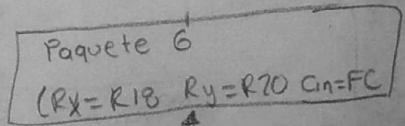 Paquete 6
(Rx=R18 Ry=R20 Cin=FC